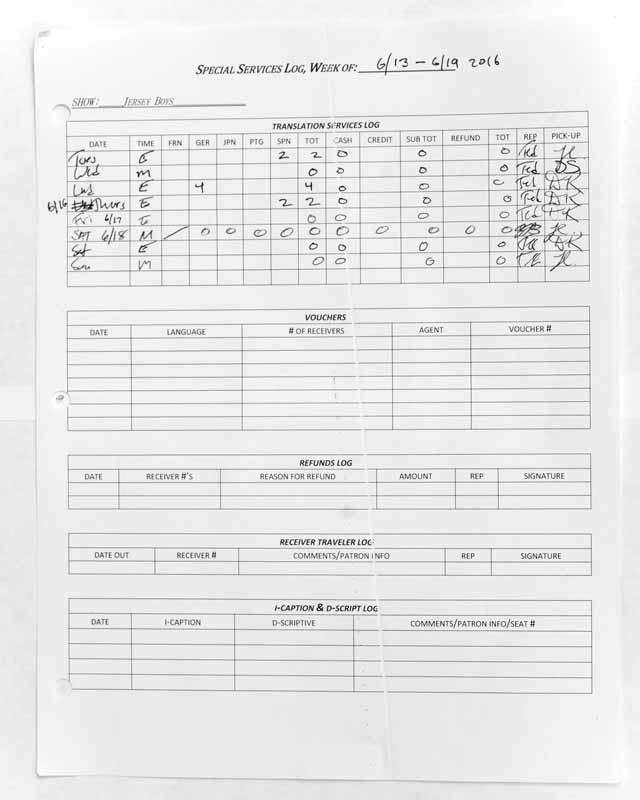 SPECIAL SERVICES LOG, WEEK OF: 6/13 - 6/19 2016
SHOW: JERSEY BOYS
TRANSLATION SERVICES LOG
DATE TIME FRN GER JPN PTG SPN TOT CASH CREDIT SUB TOT REFUND TOT REP PICK-UP
Tues E 2 2 0 0 0 Ted
Wed M 0 0 0 0 Ted DS
Wed E 4 4 0 0 0 Ted DK
6/16 Thurs E 2 2 0 0 0 Ted DK
Fri 6/17 E 0 0 0 0 Ted
SAT 6/18 M / 0 0 0 0 0 0 0 0 0 0
Sat E 0 0 0 0 DK
Sun M 0 0 0 0
VOUCHERS
DATE LANGUAGE # OF RECEIVERS AGENT VOUCHER #
REFUNDS LOG
DATE RECEIVER #'S REASON FOR REFUND AMOUNT REP SIGNATURE
RECEIVER TRAVELER LOG
DATE OUT RECEIVER # COMMENTS/PATRON INFO REP SIGNATURE
I-CAPTION & D-SCRIPT LOG
DATE I-CAPTION D-SCRIPTIVE COMMENTS/PATRON INFO/SEAT #